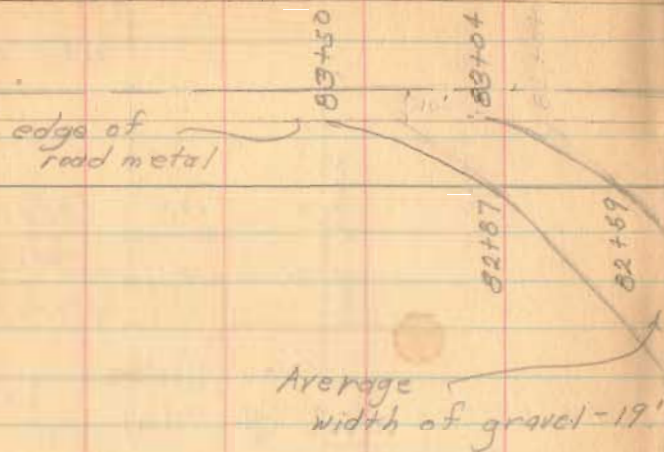 83+50
83+04
edge of
road metal
82+87
82+59
Average
width of gravel-19'